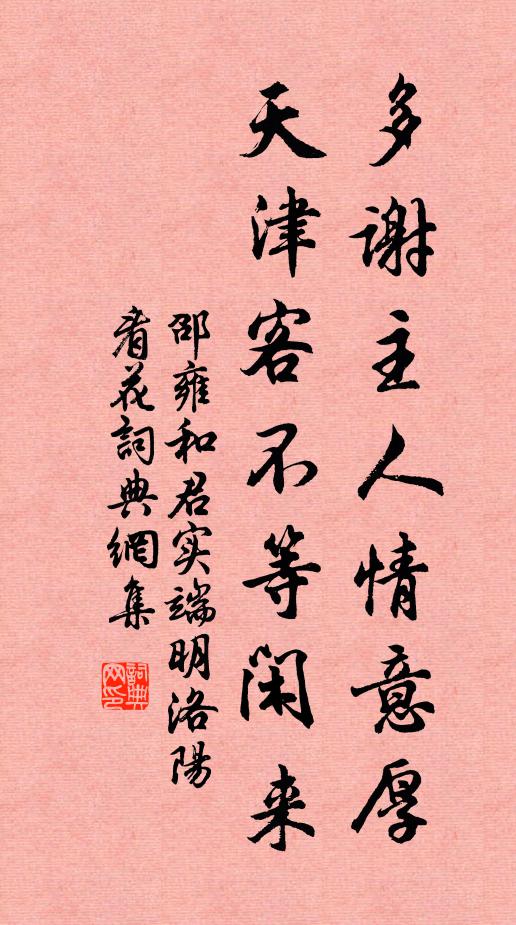 多謝主人情意厚
天津客不等閑来
邵雍和君实端明洛陽
看花詞典網集
詞典
网印